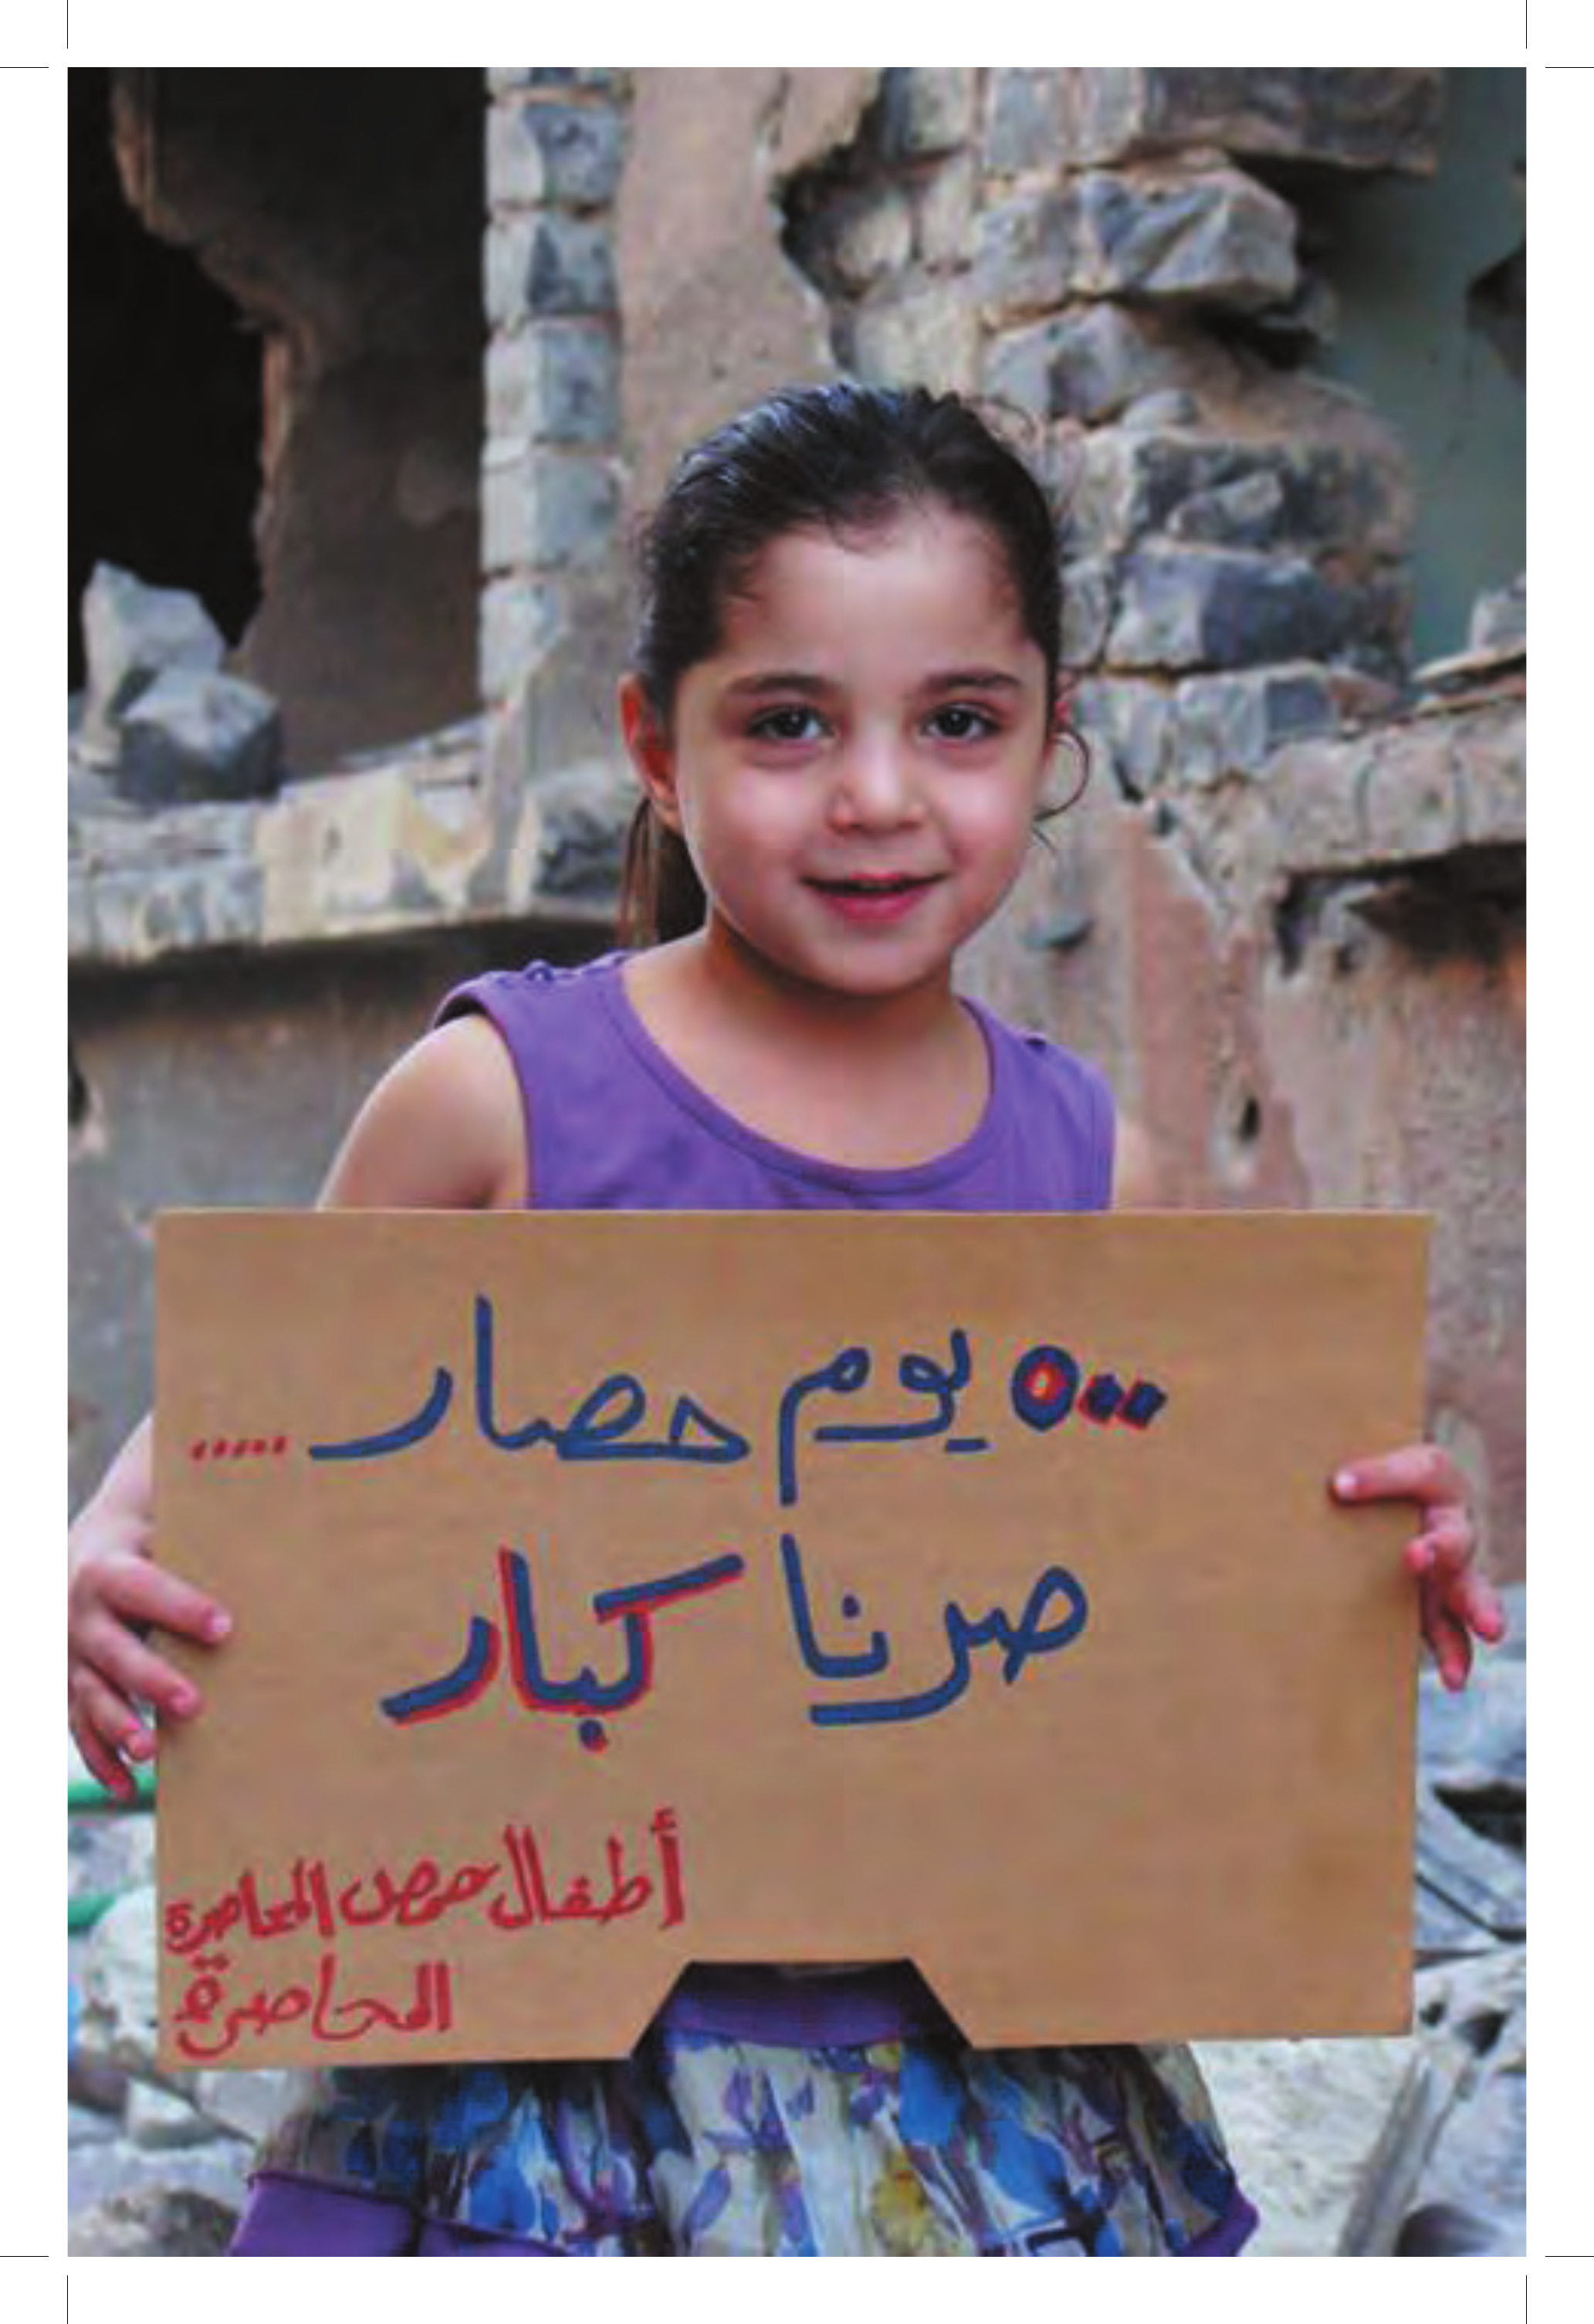 ٥٠٠ يوم حصار .....
صرنا كبار
أطفال حمص المحاصرة
المحاصرة